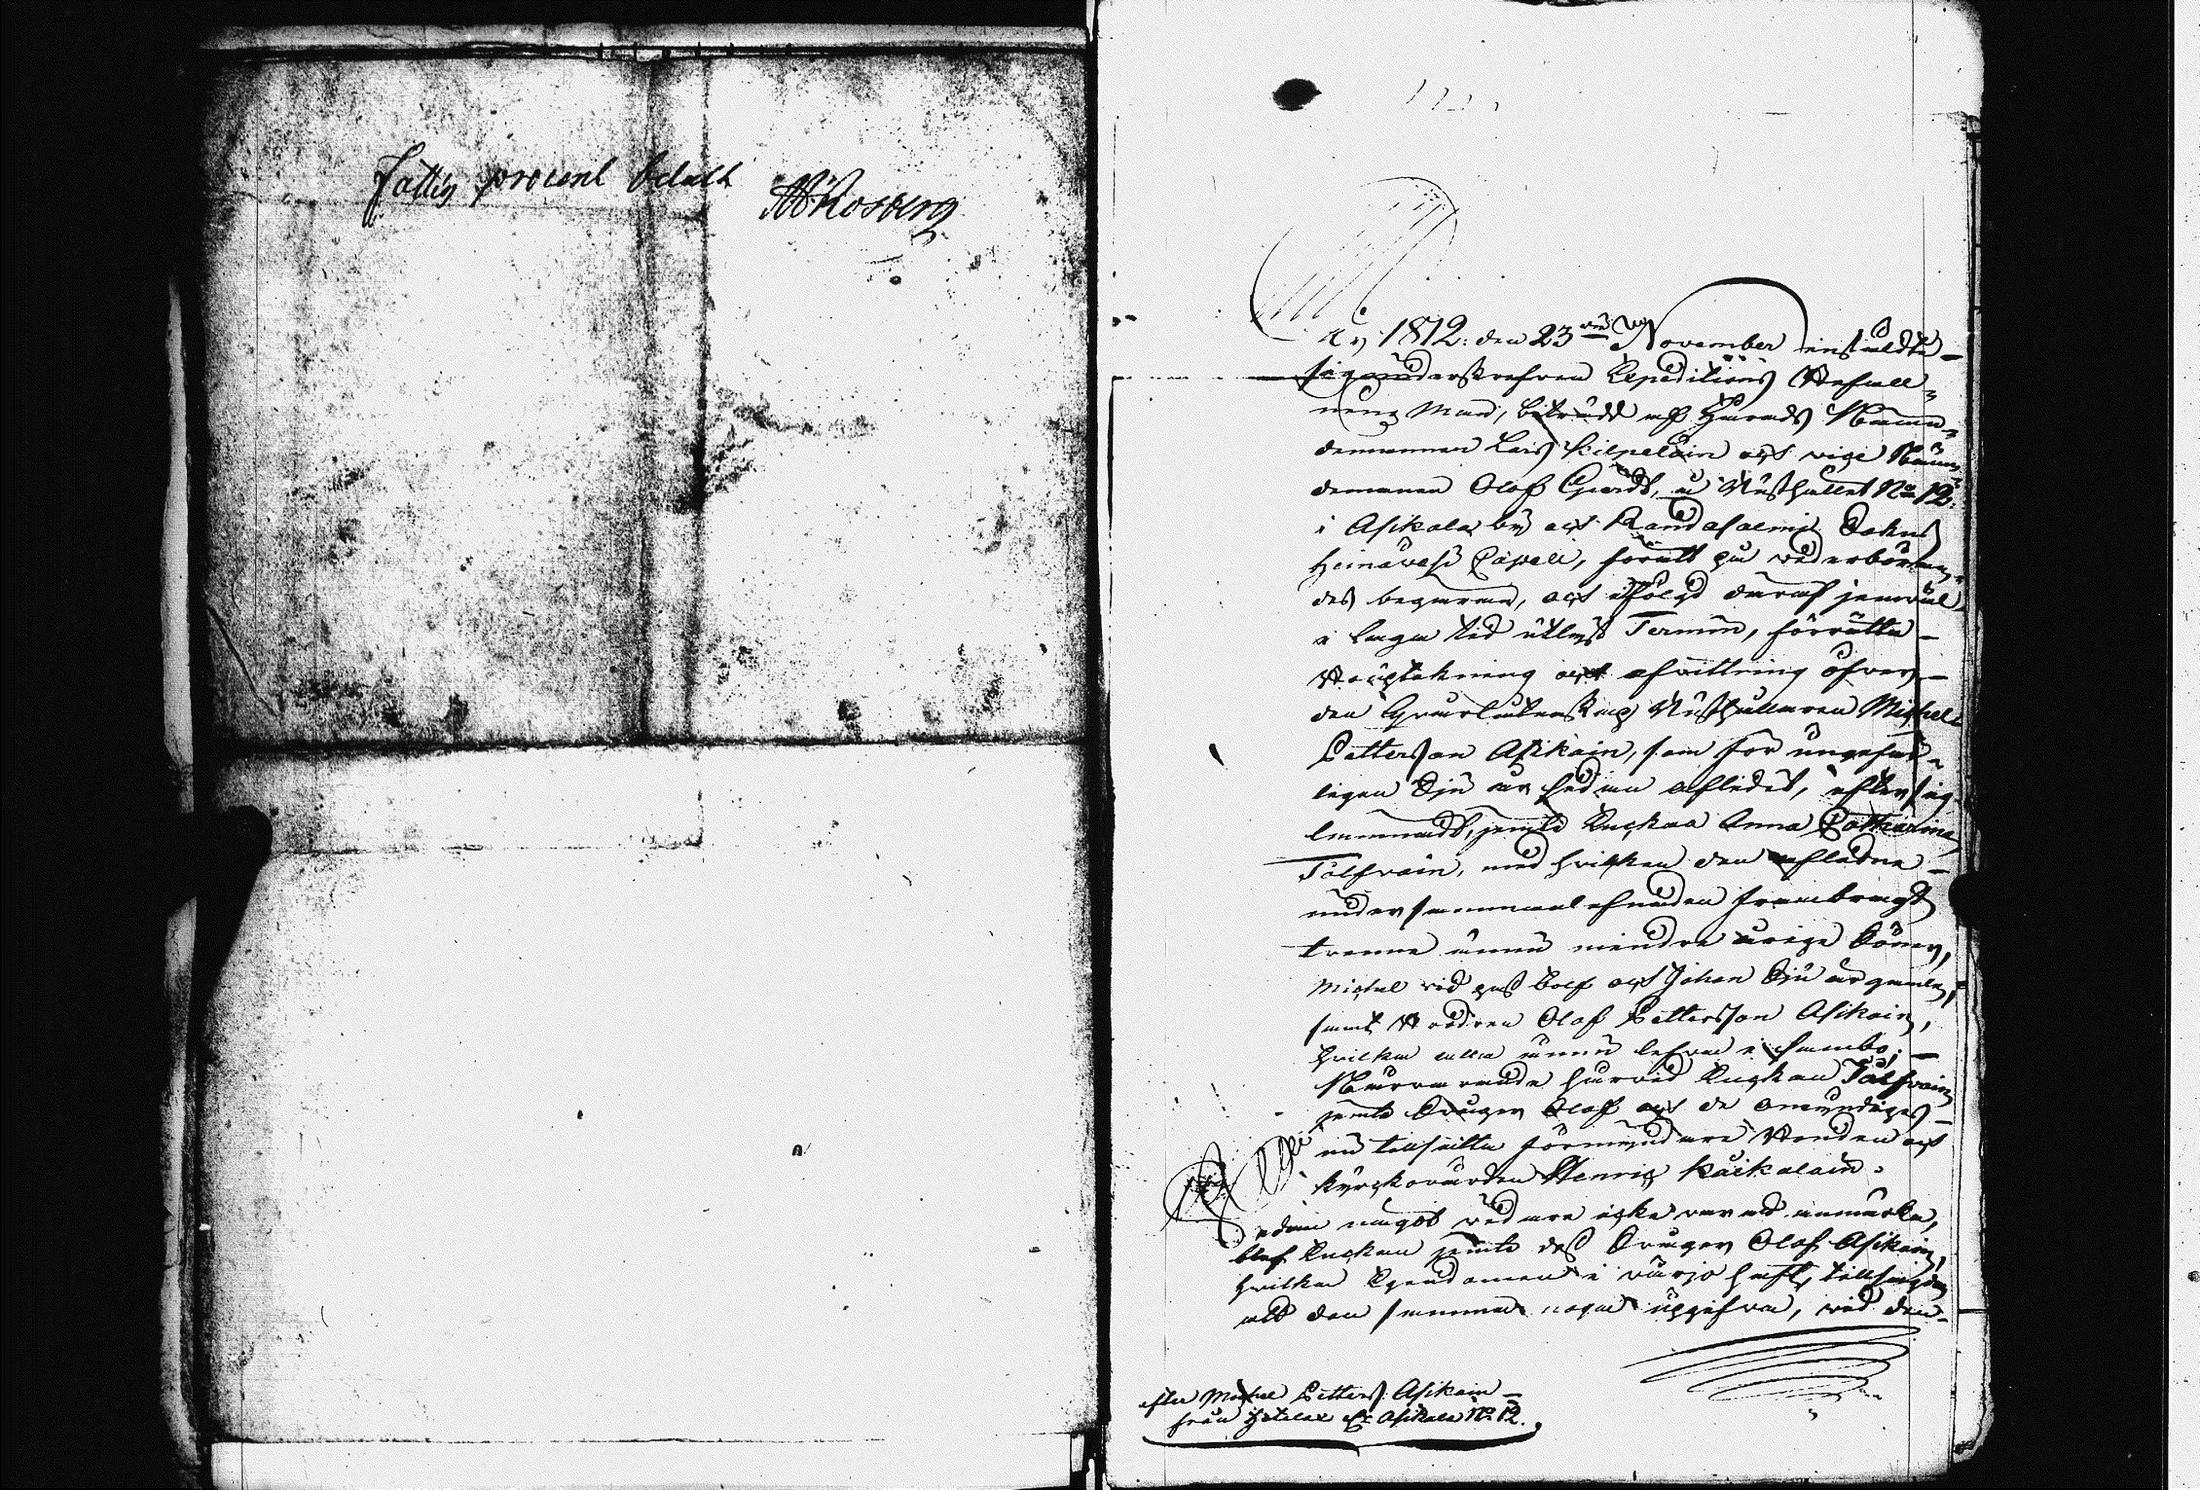 Fattig procent betalt
Rosberg
År 1812: den 23 November instälte
sig underskrefven Expeditions Befull-
mend. Man, biträdd af Härads Nämn-
demannen Lars Kilpeläin och vice Näm-
demannen Olof Gierdt, å Rusthållet No 12
i Asikala by och Randasalmi Sokns
Heinävesi Capell, förutt på vederböran-
des begäran, och i följd däraf jemväl
i laga tid utlyst Termin, förrätta
Upteckning och afvittring öfver
den Qvarlåtenskap Rusthållaren Michel
Pettersson Asikain, som för ungefär-
ligen Sju år sedan afledit, efter sig
lemnadt, jemte Enckan Anna Catharina
Tolfvain, med hvilken den aflidne
under sammanlefnaden frambragt
trenne ännu mindre årige Söner,
Michel vid pass tolf och Johan Sju år gamle,
samt Brodren Olof Pettersson Asikain,
hvilka alla ännu lefva i sambo;
Närvarande härvid Enckan Tolfvain
jemte Svåger Olof och de omyndiges
nu tillsatte förmyndare Bonden och
Kyrckovärden Henric Kaikalain.
Sedan något vidare icke var at anmärka,
blef Enckan jemte dess Svåger Olof Asikain,
hvilka Egendomen i värjo haft, tillsagde
att den samma noga uppgifva, vid den
efter Michel Petters. Asikain
från Asikala No 12.